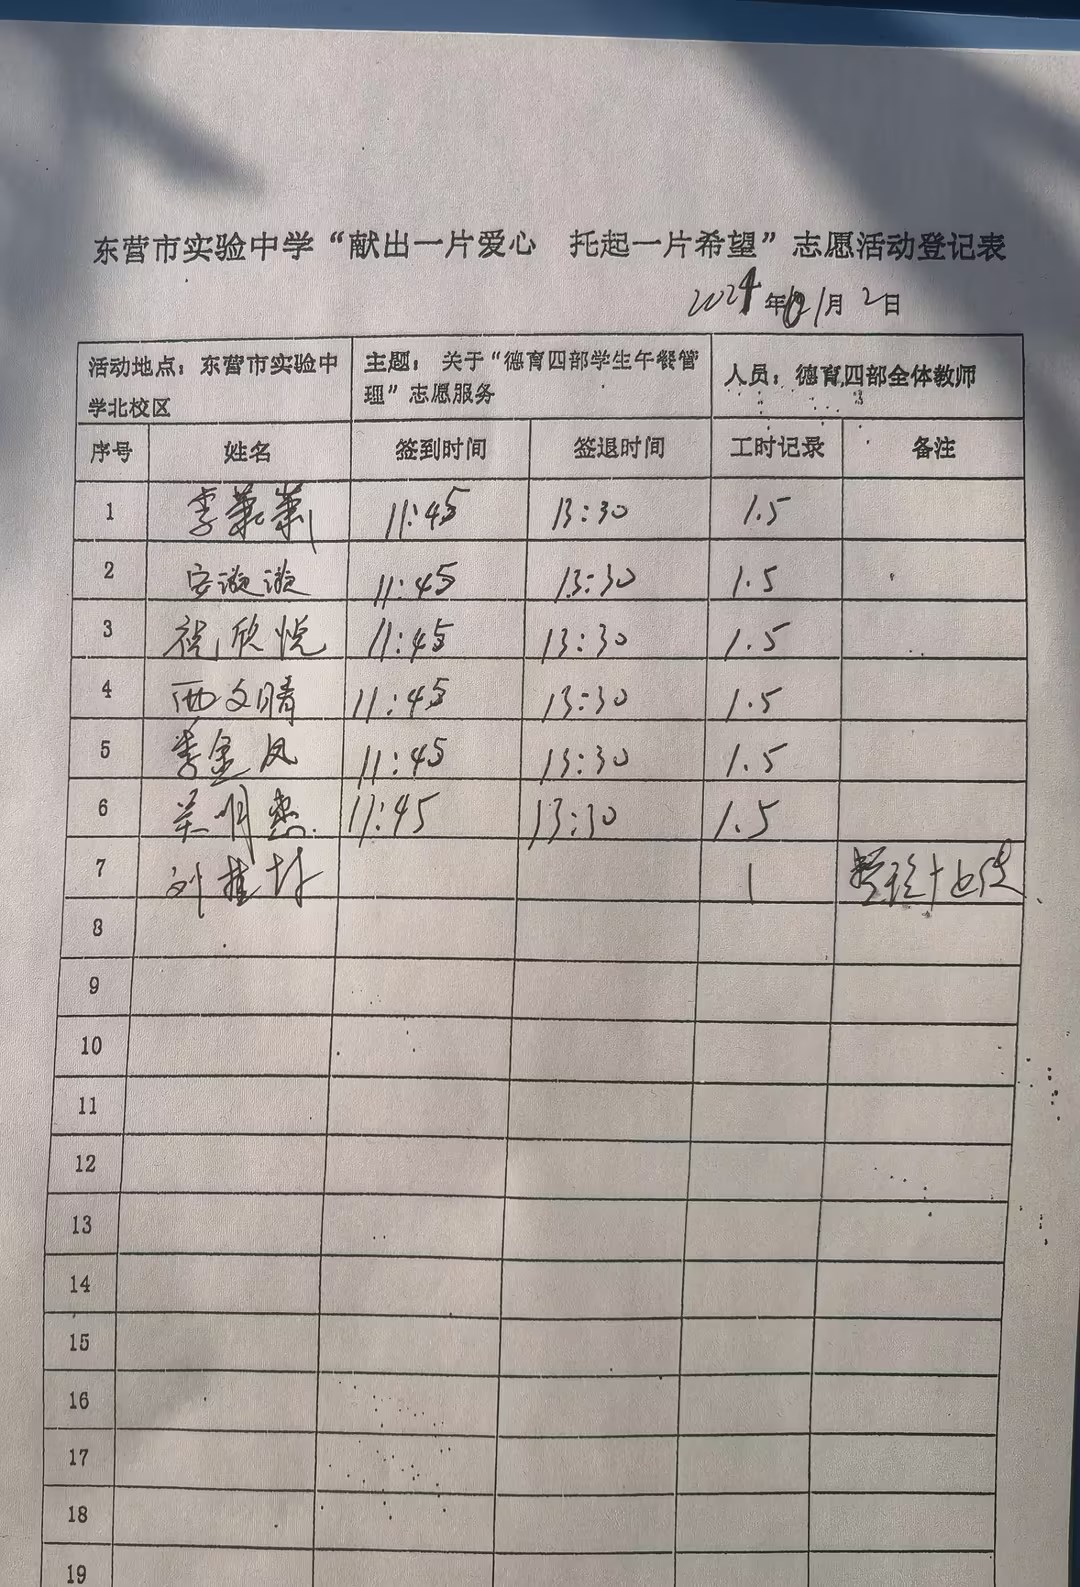 东营市实验中学“献出一片爱心 托起一片希望”志愿活动登记表
2024年 1月2日
活动地点：东营市实验中学北校区 主题：关于“德育四部学生午餐管理”志愿服务 人员：德育四部全体教师
序号 姓名 签到时间 签退时间 工时记录 备注
1 李 11:45 13:30 1.5
2 安漩漩 11:45 13:30 1.5
3 欣悦 11:45 13:30 1.5
4 西文晴 11:45 13:30 1.5
5 李金凤 11:45 13:30 1.5
6 明 11:45 13:30 1.5
7 刘桂 1
8
9
10
11
12
13
14
15
16
17
18
19